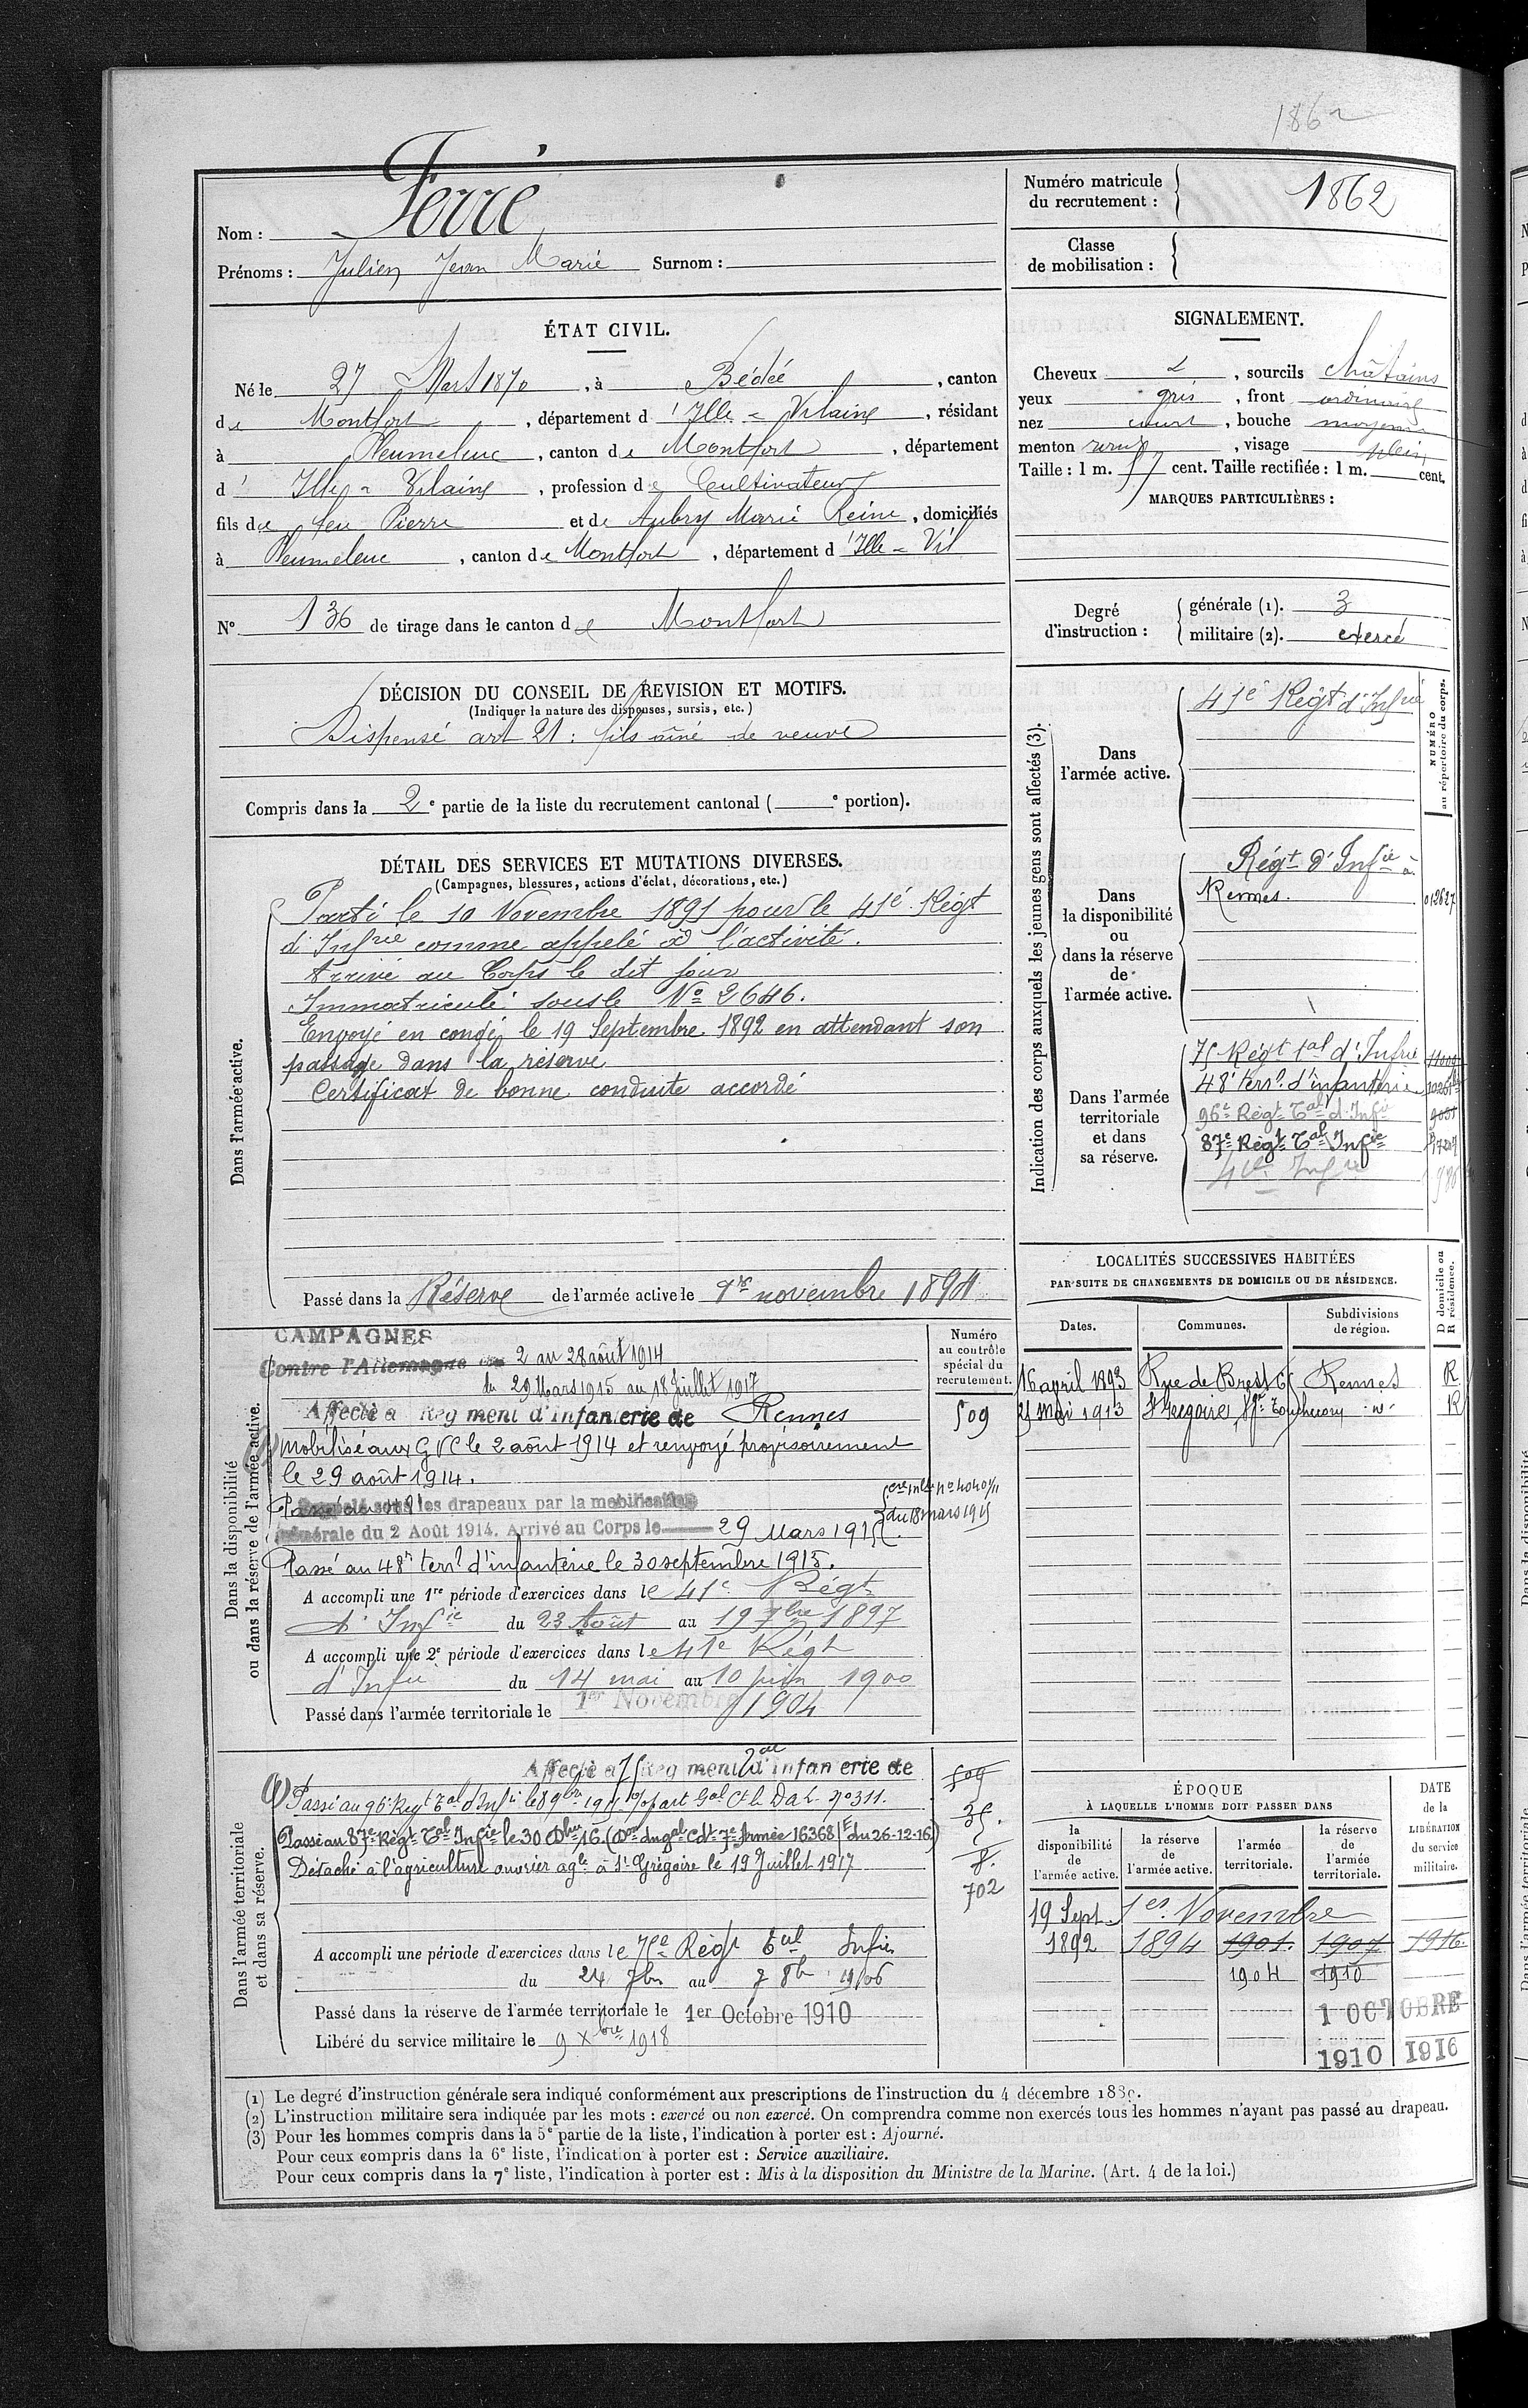 1862
Nom : Ferré
Prénoms : Julien Jean Marie Surnom :
Numéro matricule du recrutement : 1862
Classe de mobilisation :
ÉTAT CIVIL.
Né le 27 Mars 1870, à Bédée, canton
de Montfort, département d'Ille-Vilaine, résidant
à Pleumeleuc, canton de Montfort, département
d'Ille-Vilaine, profession de Cultivateur
fils de feu Pierre et de Aubry Marie Reine, domiciliés
à Pleumeleuc, canton de Montfort, département d'Ille-Vil
N° 136 de tirage dans le canton de Montfort
SIGNALEMENT.
Cheveux et, sourcils châtains
yeux gris, front ordinaire
nez court, bouche moyenne
menton rond, visage plein
Taille : 1 m. 57 cent. Taille rectifiée : 1 m. cent.
MARQUES PARTICULIÈRES :
Degré d'instruction :
générale (1). 3
militaire (2). exercé
DÉCISION DU CONSEIL DE REVISION ET MOTIFS.
(Indiquer la nature des dispenses, sursis, etc.)
Dispensé art 21 : fils aîné de veuve
Compris dans la 2e partie de la liste du recrutement cantonal ( e portion).
DÉTAIL DES SERVICES ET MUTATIONS DIVERSES.
(Campagnes, blessures, actions d'éclat, décorations, etc.)
Dans l'armée active.
Parti le 10 Novembre 1891 pour le 41e Régt
d'Infrie comme appelé à l'activité.
Arrivé au Corps le dit jour
Immatriculé sous le No 2646.
Envoyé en congé le 19 Septembre 1892 en attendant son
passage dans la réserve
Certificat de bonne conduite accordé
Passé dans la Réserve de l'armée active le 1er novembre 1894
Indication des corps auxquels les jeunes gens sont affectés (3).
NUMÉRO au répertoire du corps.
Dans l'armée active.
41e Régt d'Infrie
Dans la disponibilité ou dans la réserve de l'armée active.
Régt d'Infie à
Rennes. 012627
Dans l'armée territoriale et dans sa réserve.
75 Régt tal d'Infrie 11000
48e terr. d'infanterie
96e Régt Tal d'Infie
87e Régt Tal Infie
41e Infie
LOCALITÉS SUCCESSIVES HABITÉES
PAR SUITE DE CHANGEMENTS DE DOMICILE OU DE RÉSIDENCE.
Dates. Communes. Subdivisions de région. D domicile ou R résidence.
16 avril 1893 Rue de Brest Rennes R
25 Mai 1913 St Grégoire R
Dans la disponibilité ou dans la réserve de l'armée active.
Numéro au contrôle spécial du recrutement.
509
CAMPAGNES
Contre l'Allemagne 2 au 28 août 1914
du 29 Mars 1915 au 18 Juillet 1917
Affecté à Régiment d'Infanterie de Rennes
Mobilisé aux GVC le 2 août 1914 et renvoyé provisoirement
le 29 août 1914.
Rappelé sous les drapeaux par la mobilisation
Générale du 2 Août 1914. Arrivé au Corps le 29 Mars 1915
du 18 mars 1915
Passé au 48e terr. d'infanterie le 30 septembre 1915.
A accompli une 1re période d'exercices dans le 41e Régt
d'Infie du 23 Août au 19 7bre 1897
A accompli une 2e période d'exercices dans le 41e Régt
d'Infie du 14 mai au 10 juin 1900
Passé dans l'armée territoriale le 1er Novembre 1904
Dans l'armée territoriale et dans sa réserve.
Affecté à 75 Régiment tal d'infanterie de
Passé au 96e Régt Tal d'Infie le 8 9bre 1915 No 311.
Passé au 87e Régt Tal Infie le 30 Dbre 16. (Don du gal Cdt 7e Armée 16368/E du 26-12-16.)
Détaché à l'agriculture ouvrier agle à St Grégoire le 19 Juillet 1917
509
35.
8.
702
A accompli une période d'exercices dans le 75e Régt Tal Infie
du 24 7bre au 7 8bre 1906
Passé dans la réserve de l'armée territoriale le 1er Octobre 1910
Libéré du service militaire le 9 Xbre 1918
ÉPOQUE À LAQUELLE L'HOMME DOIT PASSER DANS
la disponibilité de l'armée active. la réserve de l'armée active. l'armée territoriale. la réserve de l'armée territoriale. DATE de la LIBÉRATION du service militaire.
19 Sept. 1er Novembre
1892 1894 1901. 1907 1916.
1904 1910
1 OCTOBRE
1910 1916
(1) Le degré d'instruction générale sera indiqué conformément aux prescriptions de l'instruction du 4 décembre 1889.
(2) L'instruction militaire sera indiquée par les mots : exercé ou non exercé. On comprendra comme non exercés tous les hommes n'ayant pas passé au drapeau.
(3) Pour les hommes compris dans la 5e partie de la liste, l'indication à porter est : Ajourné.
Pour ceux compris dans la 6e liste, l'indication à porter est : Service auxiliaire.
Pour ceux compris dans la 7e liste, l'indication à porter est : Mis à la disposition du Ministre de la Marine. (Art. 4 de la loi.)